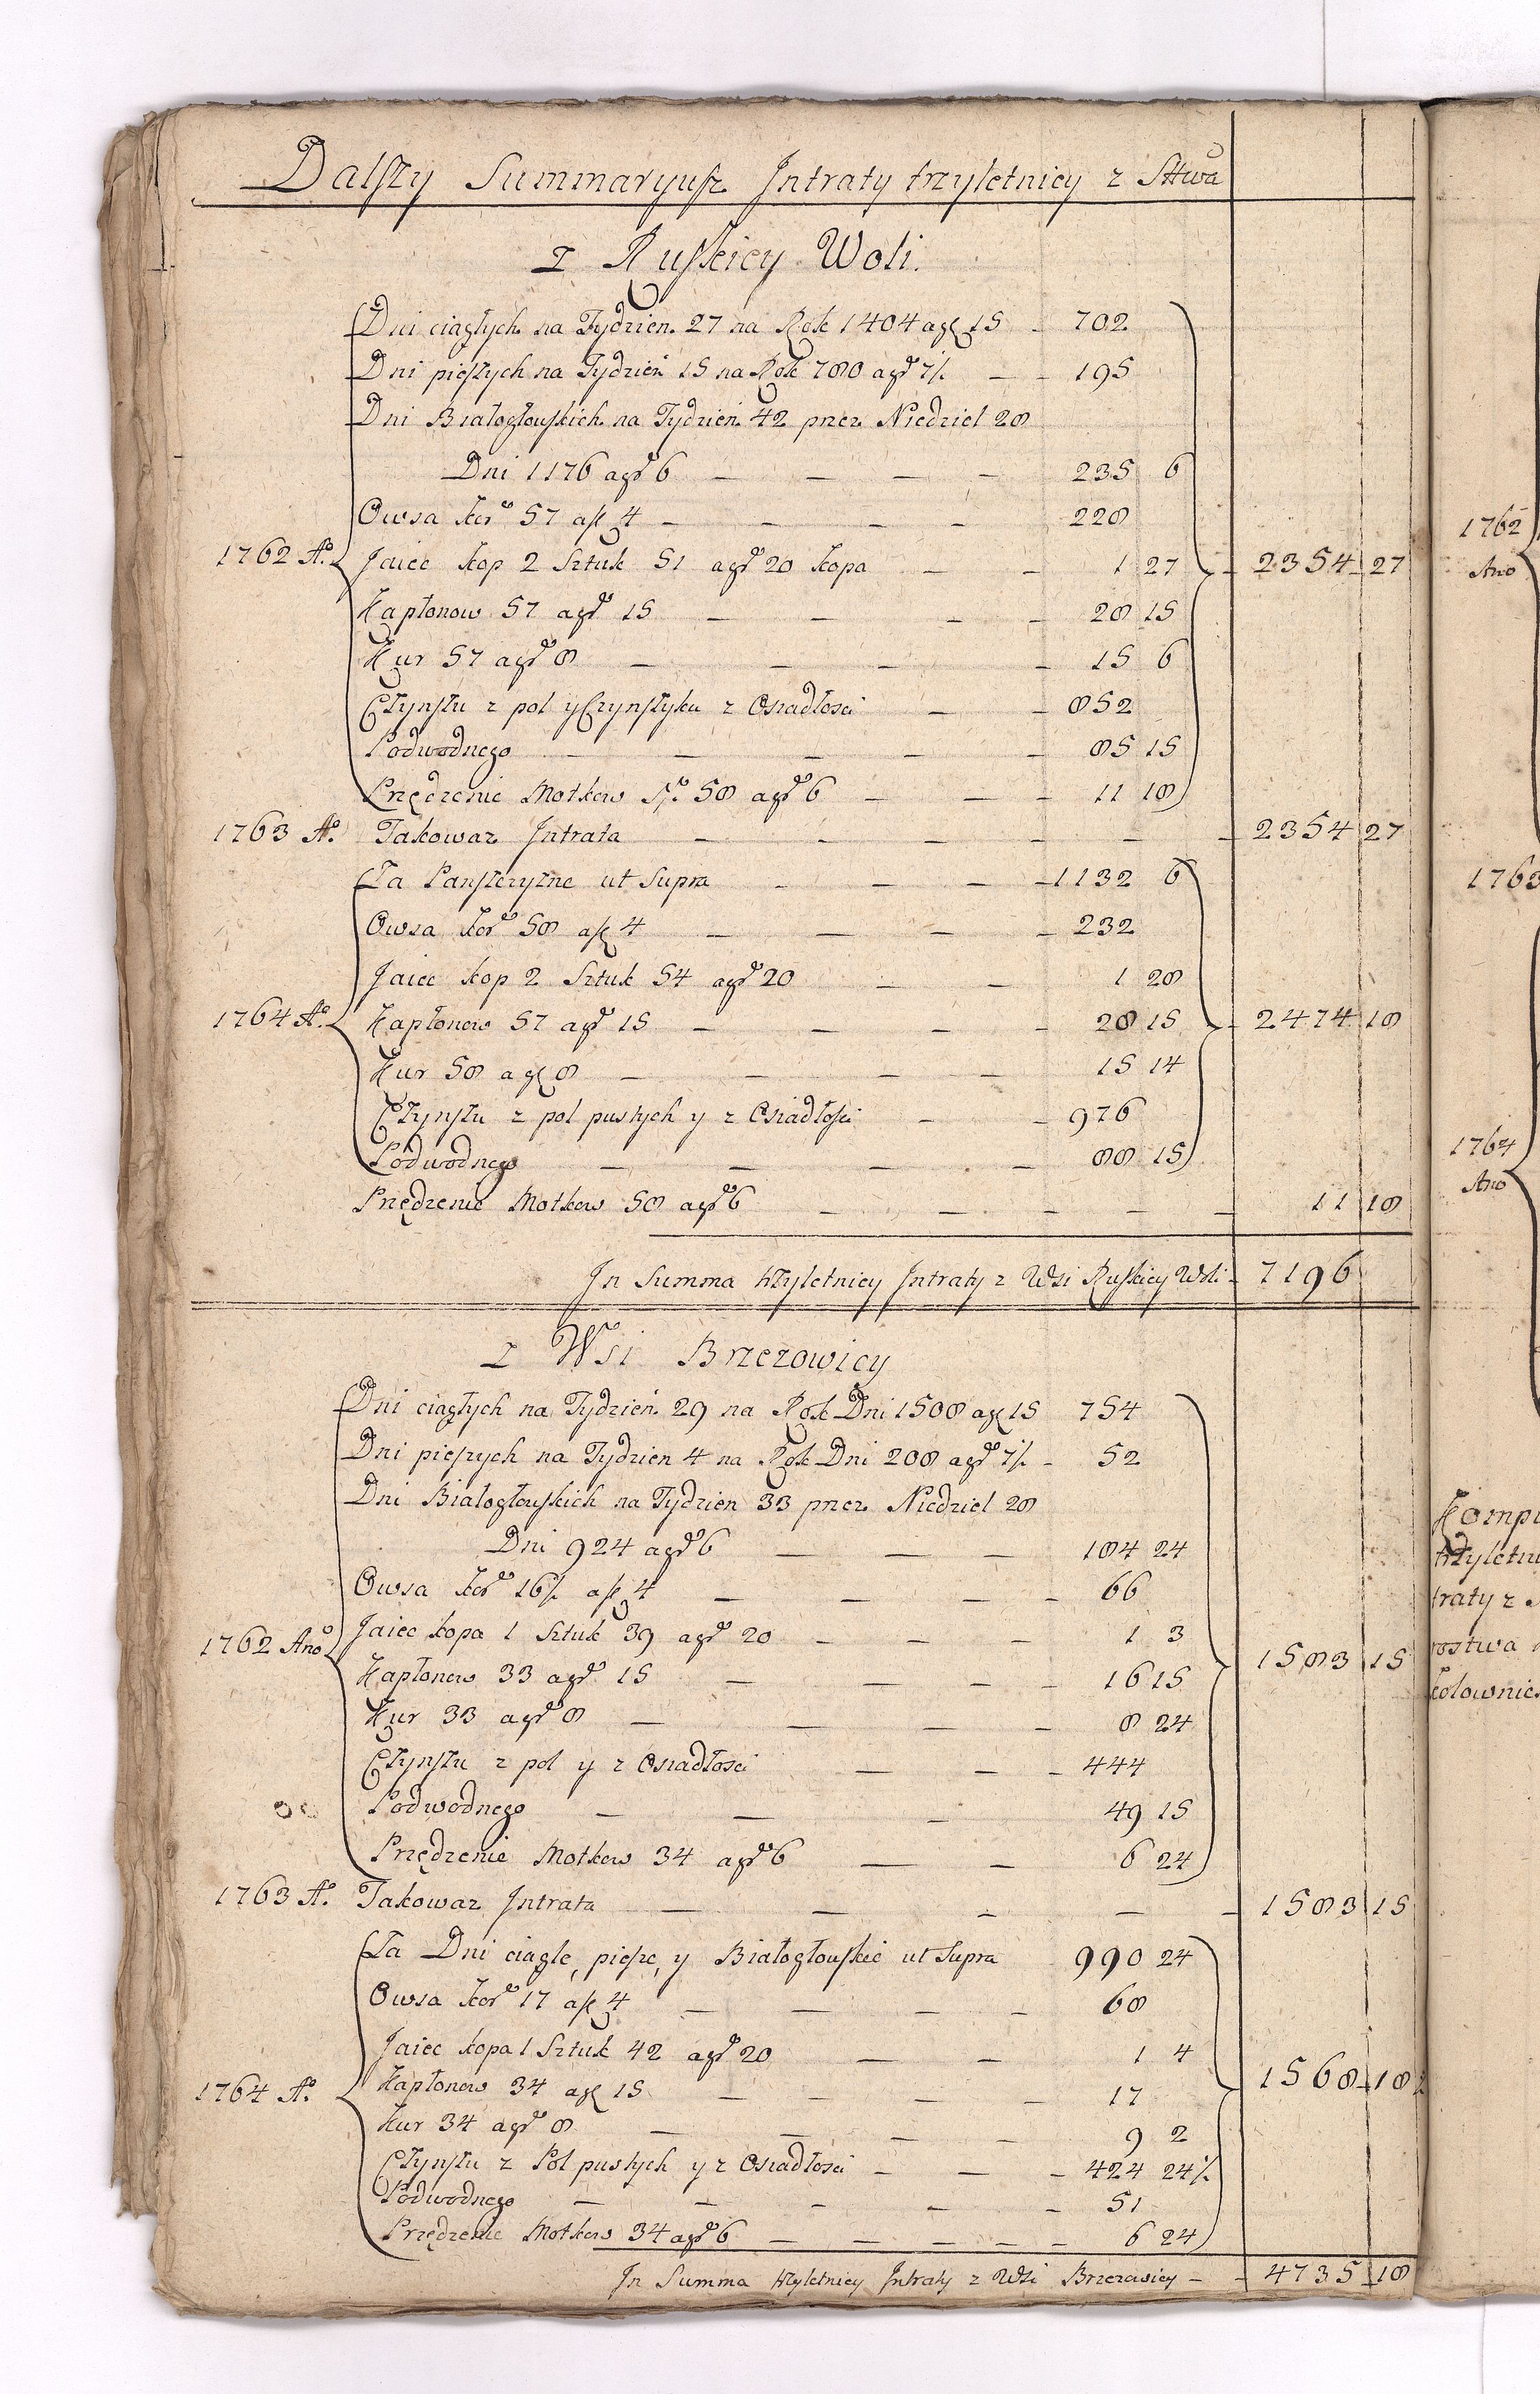 Dalszy Summaryusz Intraty trzyletniey z Sttwa
z Ruskiey Woli.
Dni ciągłych na Tydzien 27 na Rok 1404 a gr 15 - 702
Dni pieszych na Tydzień 15 na Rok 780 a gr 7/. - - 195
Dni Białogłouskich na Tydzień 42 przez Niedziel 28
Dni 1176 a gr 6 - - - - 235 6
Owsa kor 57 a fl 4 - - - - 228
1762 Ao. Jaiec kop 2 Sztuk 51 a gr 20 kopa - - 1 27 - 2354 27
Kapłonow 57 a gr 15 - - - - 28 15
Kur 57 a gr 8 - - - - 15 6
Czynszu z pol y Czynszyku z Osiadłosci - - 852
Podwodnego - - - - - 85 15
Przędzenie Motkow No. 58 a gr 6 - - - 11 18
1763 Ao. Takowaz Intrata - - - - - - 2354 27
Ta Panszczyzne ut Supra - - - 1132 6
Owsa kor 58 a fl 4 - - - - 232
Jaiec kop 2 Sztuk 54 a gr 20 - - 1 28
1764 Ao. Kapłonow 57 a gr 15 - - - - 28 15 - 2474 18
Kur 58 a gr 8 - - - - 15 14
Czynszu z pol pustych y z Osiadłosci - - 976
Podwodnego - - - - 88 15
Przędzenie Motkow 58 a gr 6 - - - - - 11 18
In Summa trzyletniey Intraty z Wsi Ruskiey Woli - 7196
z Wsi Brzezowicy
Dni ciągłych na Tydzień 29 na Rok Dni 1508 a gr 15 754
Dni pieszych na Tydzien 4 na Rok Dni 208 a gr 7/. - 52
Dni Białogłouskich na Tydzien 33 przez Niedziel 28
Dni 924 a gr 6 - - - 184 24
Owsa kor 16/. a fl 4 - - - - 66
1762 Ano Jaiec kopa 1 Sztuk 39 a gr 20 - - - 1 3 1583 15
Kapłonow 33 a gr 15 - - - - 16 15
Kur 33 a gr 8 - - - - 8 24
Czynszu z pol y z Osiadłosci - - - 444
Podwodnego - - - 49 15
Przędzenie Motkow 34 a gr 6 - - 6 24
1763 Ao. Takowaz Intrata - - - - - 1583 15
Ta Dni ciągłe, piesze, y Białogłouskie ut Supra 990 24
Owsa kor 17 a fl 4 - - - - 68
Jaiec kopa 1 Sztuk 42 a gr 20 - - 1 4
1764 Ao. Kapłonow 34 a gr 15 - - - - 17 1568 18
Kur 34 a gr 8 - - - - 9 2
Czynszu z Pol pustych y z Osiadłosci - - - 424 24/.
Podwodnego - - - - - 51
Przędzenie Motkow 34 a gr 6 - - - - - 6 24
In Summa trzyletniey Intraty z Wsi Brzezowicy - - 4735 18
1762
Ano
1763
1764
Ano